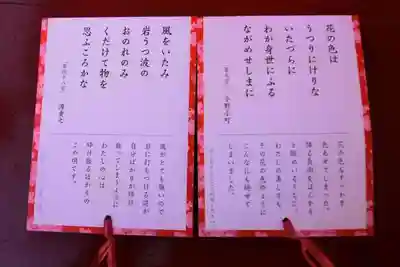 花の色は
うつりにけりな
いたづらに
わが身世にふる
ながめせしまに
小野小町
花の色もすっかり
色あせてしまった。
降る長雨をぼんやり
と眺めいるうちに。
わたしの美しさも
その花の色のように
こんなにも褪せて
しまいました。
風をいたみ
岩うつ波の
おのれのみ
くだけて物を
思ふころかな
源重之
風がとても強いので
岩に打ちつける波が
自分ばかりが砕け
散ってしまうように
わたしの心は
砕け散るばかりの
この頃です。